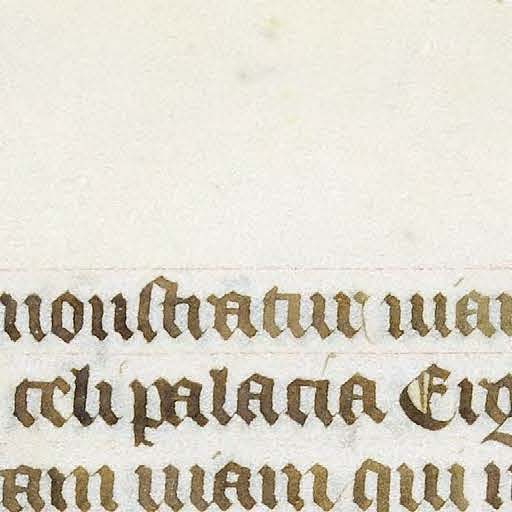 monstratur uiam
celi palacia Erg
am uiam qui